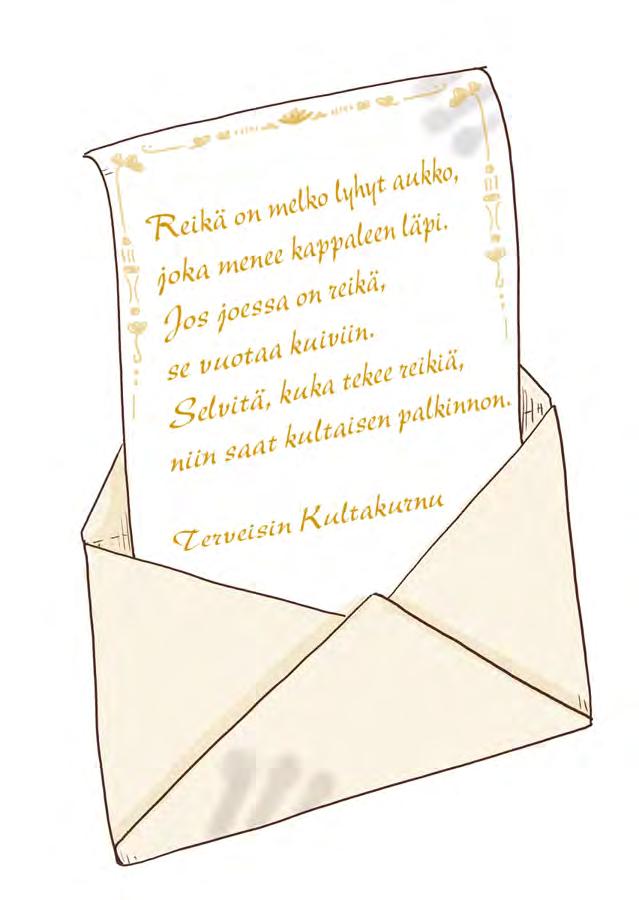 Reikä on melko lyhyt aukko,
joka menee kappaleen läpi.
Jos joessa on reikä,
se vuotaa kuiviin.
Selvitä, kuka tekee reikiä,
niin saat kultaisen palkinnon.
Terveisin Kultakurnu